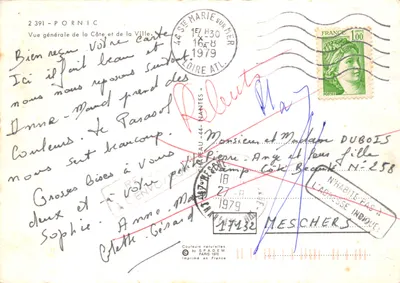 2 391 - PORNIC
Vue générale de la Côte et de la Ville
Bien reçu votre carte
Ici il fait beau et
nous nous reposons surtout
Anne-Maud prend des
Couleurs. Le Parasol
nous sert beaucoup.
Grosses Bises à vous
deux et à votre petite
Sophie. Anne-Maud
Colette. Gérard
44 STE MARIE SUR MER
15H30
16-8
1979
LOIRE ATL.
1,00
Rebuts
Monsieur et Madame DUBOIS
Pierre-Any et leur fille
Camp Côte Beauté N-258
17132 MESCHERS
18
27-8
1979
N'HABITE PAS A
L'ADRESSE INDIQUÉE
Couleurs naturelles
by SPADEM
Imprimé en France